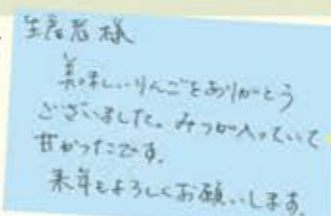 生産者様
美味しいりんごをありがとう
ございました。みつが入っていて
甘かったです。
来年もよろしくお願いします。